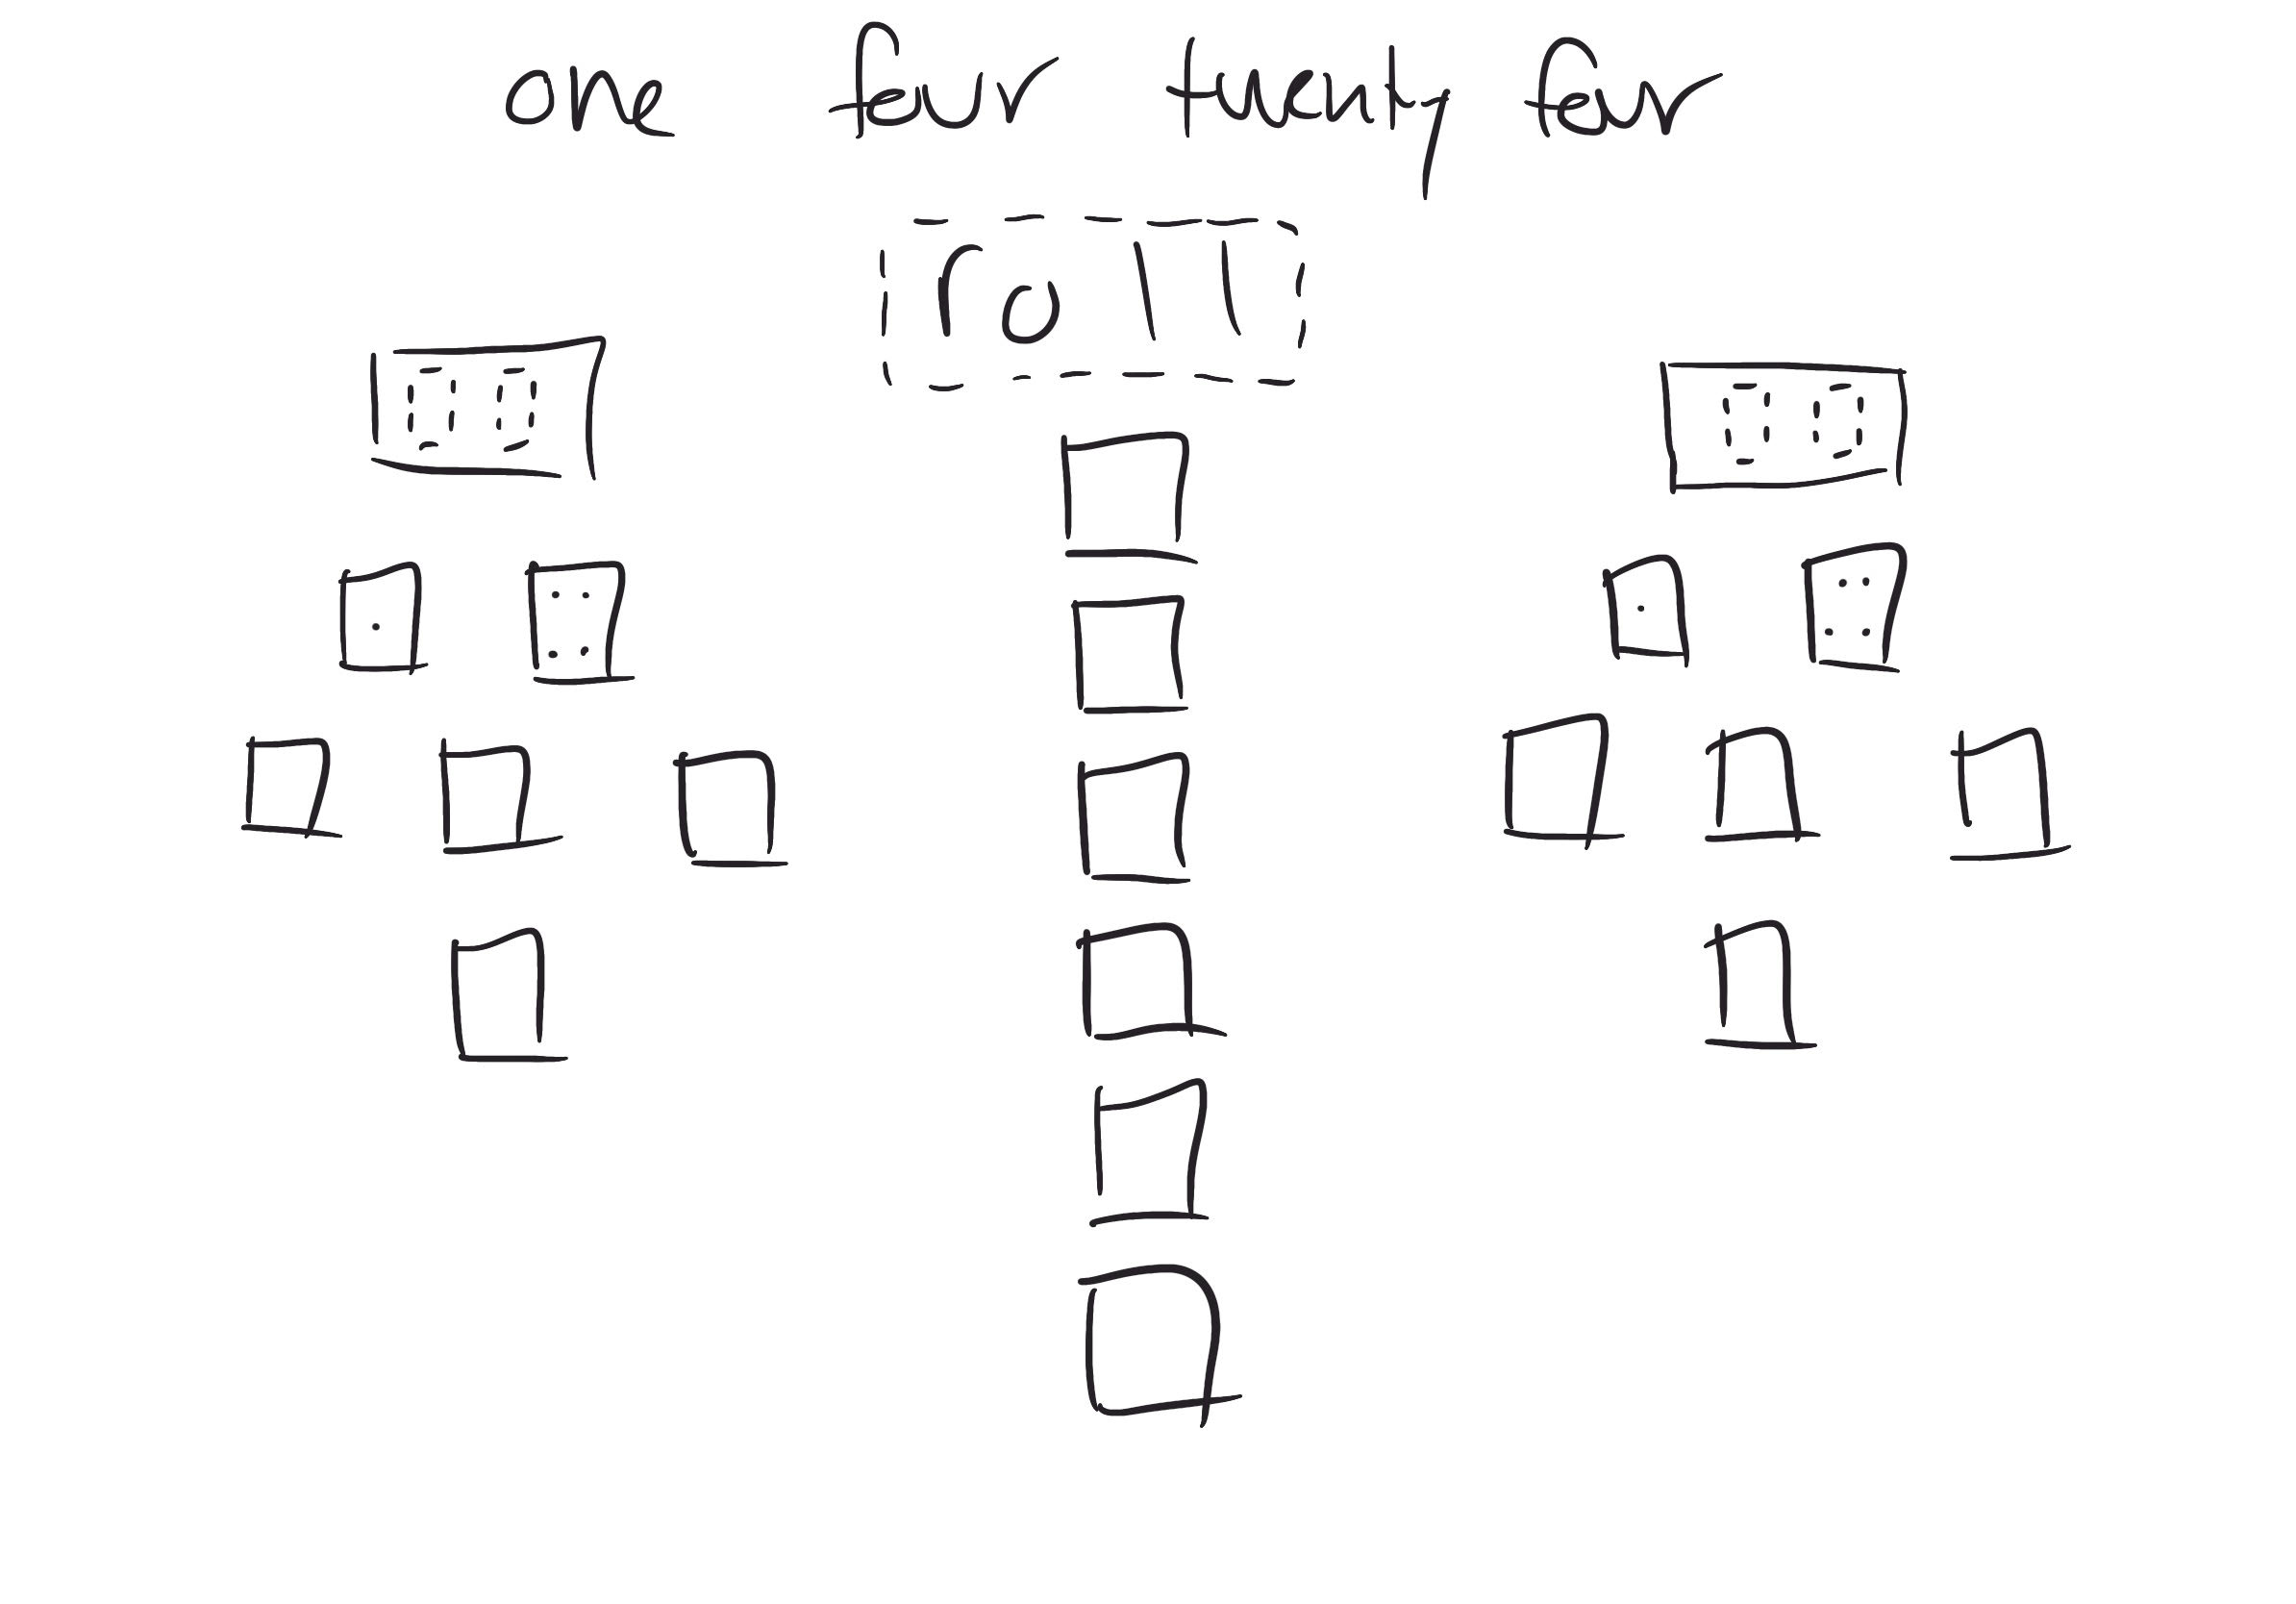 one four twenty four
roll
00 00